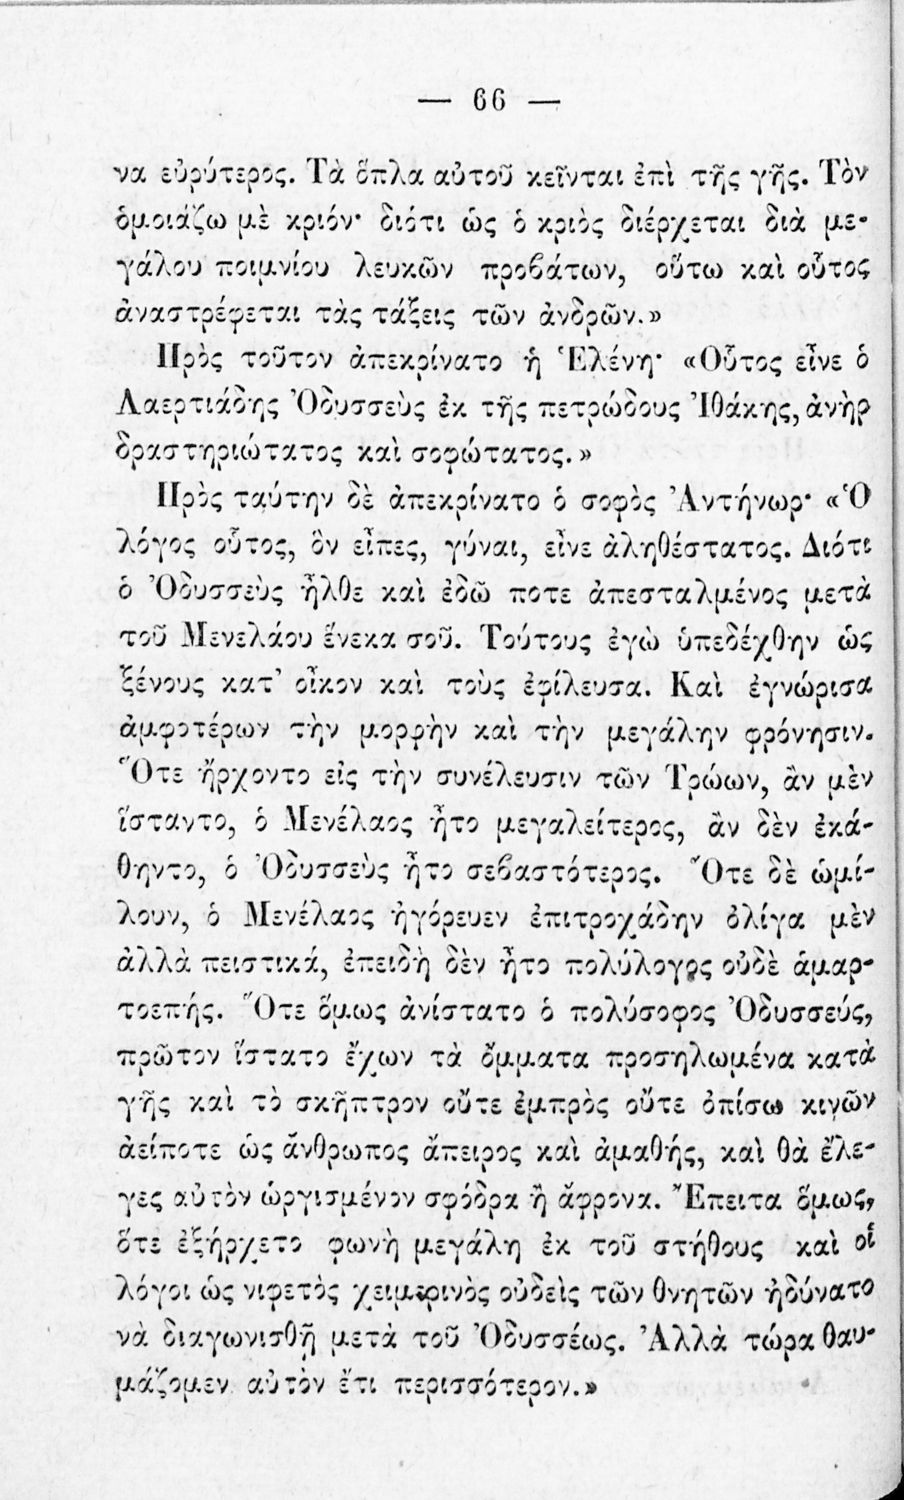 — 66 —
να εὐρύτερος. Τὰ ὅπλα αὐτοῦ κεῖνται ἐπὶ τῆς γῆς. Τὸν
ὁμοιάζω μὲ κριόν· διότι ὡς ὁ κριὸς διέρχεται διὰ με-
γάλου ποιμνίου λευκῶν προβάτων, οὕτω καὶ οὗτος
ἀναστρέφεται τὰς τάξεις τῶν ἀνδρῶν.»
Πρὸς τοῦτον ἀπεκρίνατο ἡ Ἑλένη· «Οὗτος εἶνε ὁ
Λαερτιάδης Ὀδυσσεὺς ἐκ τῆς πετρώδους Ἰθάκης, ἀνὴρ
δραστηριώτατος καὶ σοφώτατος.»
Πρὸς ταύτην δὲ ἀπεκρίνατο ὁ σοφὸς Ἀντήνωρ· «Ὁ
λόγος οὗτος, ὃν εἶπες, γύναι, εἶνε ἀληθέστατος. Διότι
ὁ Ὀδυσσεὺς ἦλθε καὶ ἐδῶ ποτε ἀπεσταλμένος μετὰ
τοῦ Μενελάου ἕνεκα σοῦ. Τούτους ἐγὼ ὑπεδέχθην ὡς
ξένους κατ' οἶκον καὶ τοὺς ἐφίλευσα. Καὶ ἐγνώρισα
ἀμφοτέρων τὴν μορφὴν καὶ τὴν μεγάλην φρόνησιν.
Ὅτε ἤρχοντο εἰς τὴν συνέλευσιν τῶν Τρώων, ἂν μὲν
ἵσταντο, ὁ Μενέλαος ἦτο μεγαλείτερος, ἂν δὲν ἐκά-
θηντο, ὁ Ὀδυσσεὺς ἦτο σεβαστότερος. Ὅτε δὲ ὡμί-
λουν, ὁ Μενέλαος ἠγόρευεν ἐπιτροχάδην ὀλίγα μὲν
ἀλλὰ πειστικά, ἐπειδὴ δὲν ἦτο πολύλογος οὐδὲ ἁμαρ-
τοεπής. Ὅτε ὅμως ἀνίστατο ὁ πολύσοφος Ὀδυσσεύς,
πρῶτον ἵστατο ἔχων τὰ ὄμματα προσηλωμένα κατὰ
γῆς καὶ τὸ σκῆπτρον οὔτε ἐμπρὸς οὔτε ὀπίσω κινῶν
ἀείποτε ὡς ἄνθρωπος ἄπειρος καὶ ἀμαθής, καὶ θὰ ἔλε-
γες αὐτὸν ὠργισμένον σφόδρα ἢ ἄφρονα. Ἔπειτα ὅμως,
ὅτε ἐξήρχετο φωνὴ μεγάλη ἐκ τοῦ στήθους καὶ οἱ
λόγοι ὡς νιφετὸς χειμερινὸς οὐδεὶς τῶν θνητῶν ἠδύνατο
νὰ διαγωνισθῇ μετὰ τοῦ Ὀδυσσέως. Ἀλλὰ τώρα θαυ-
μάζομεν αὐτὸν ἔτι περισσότερον.»